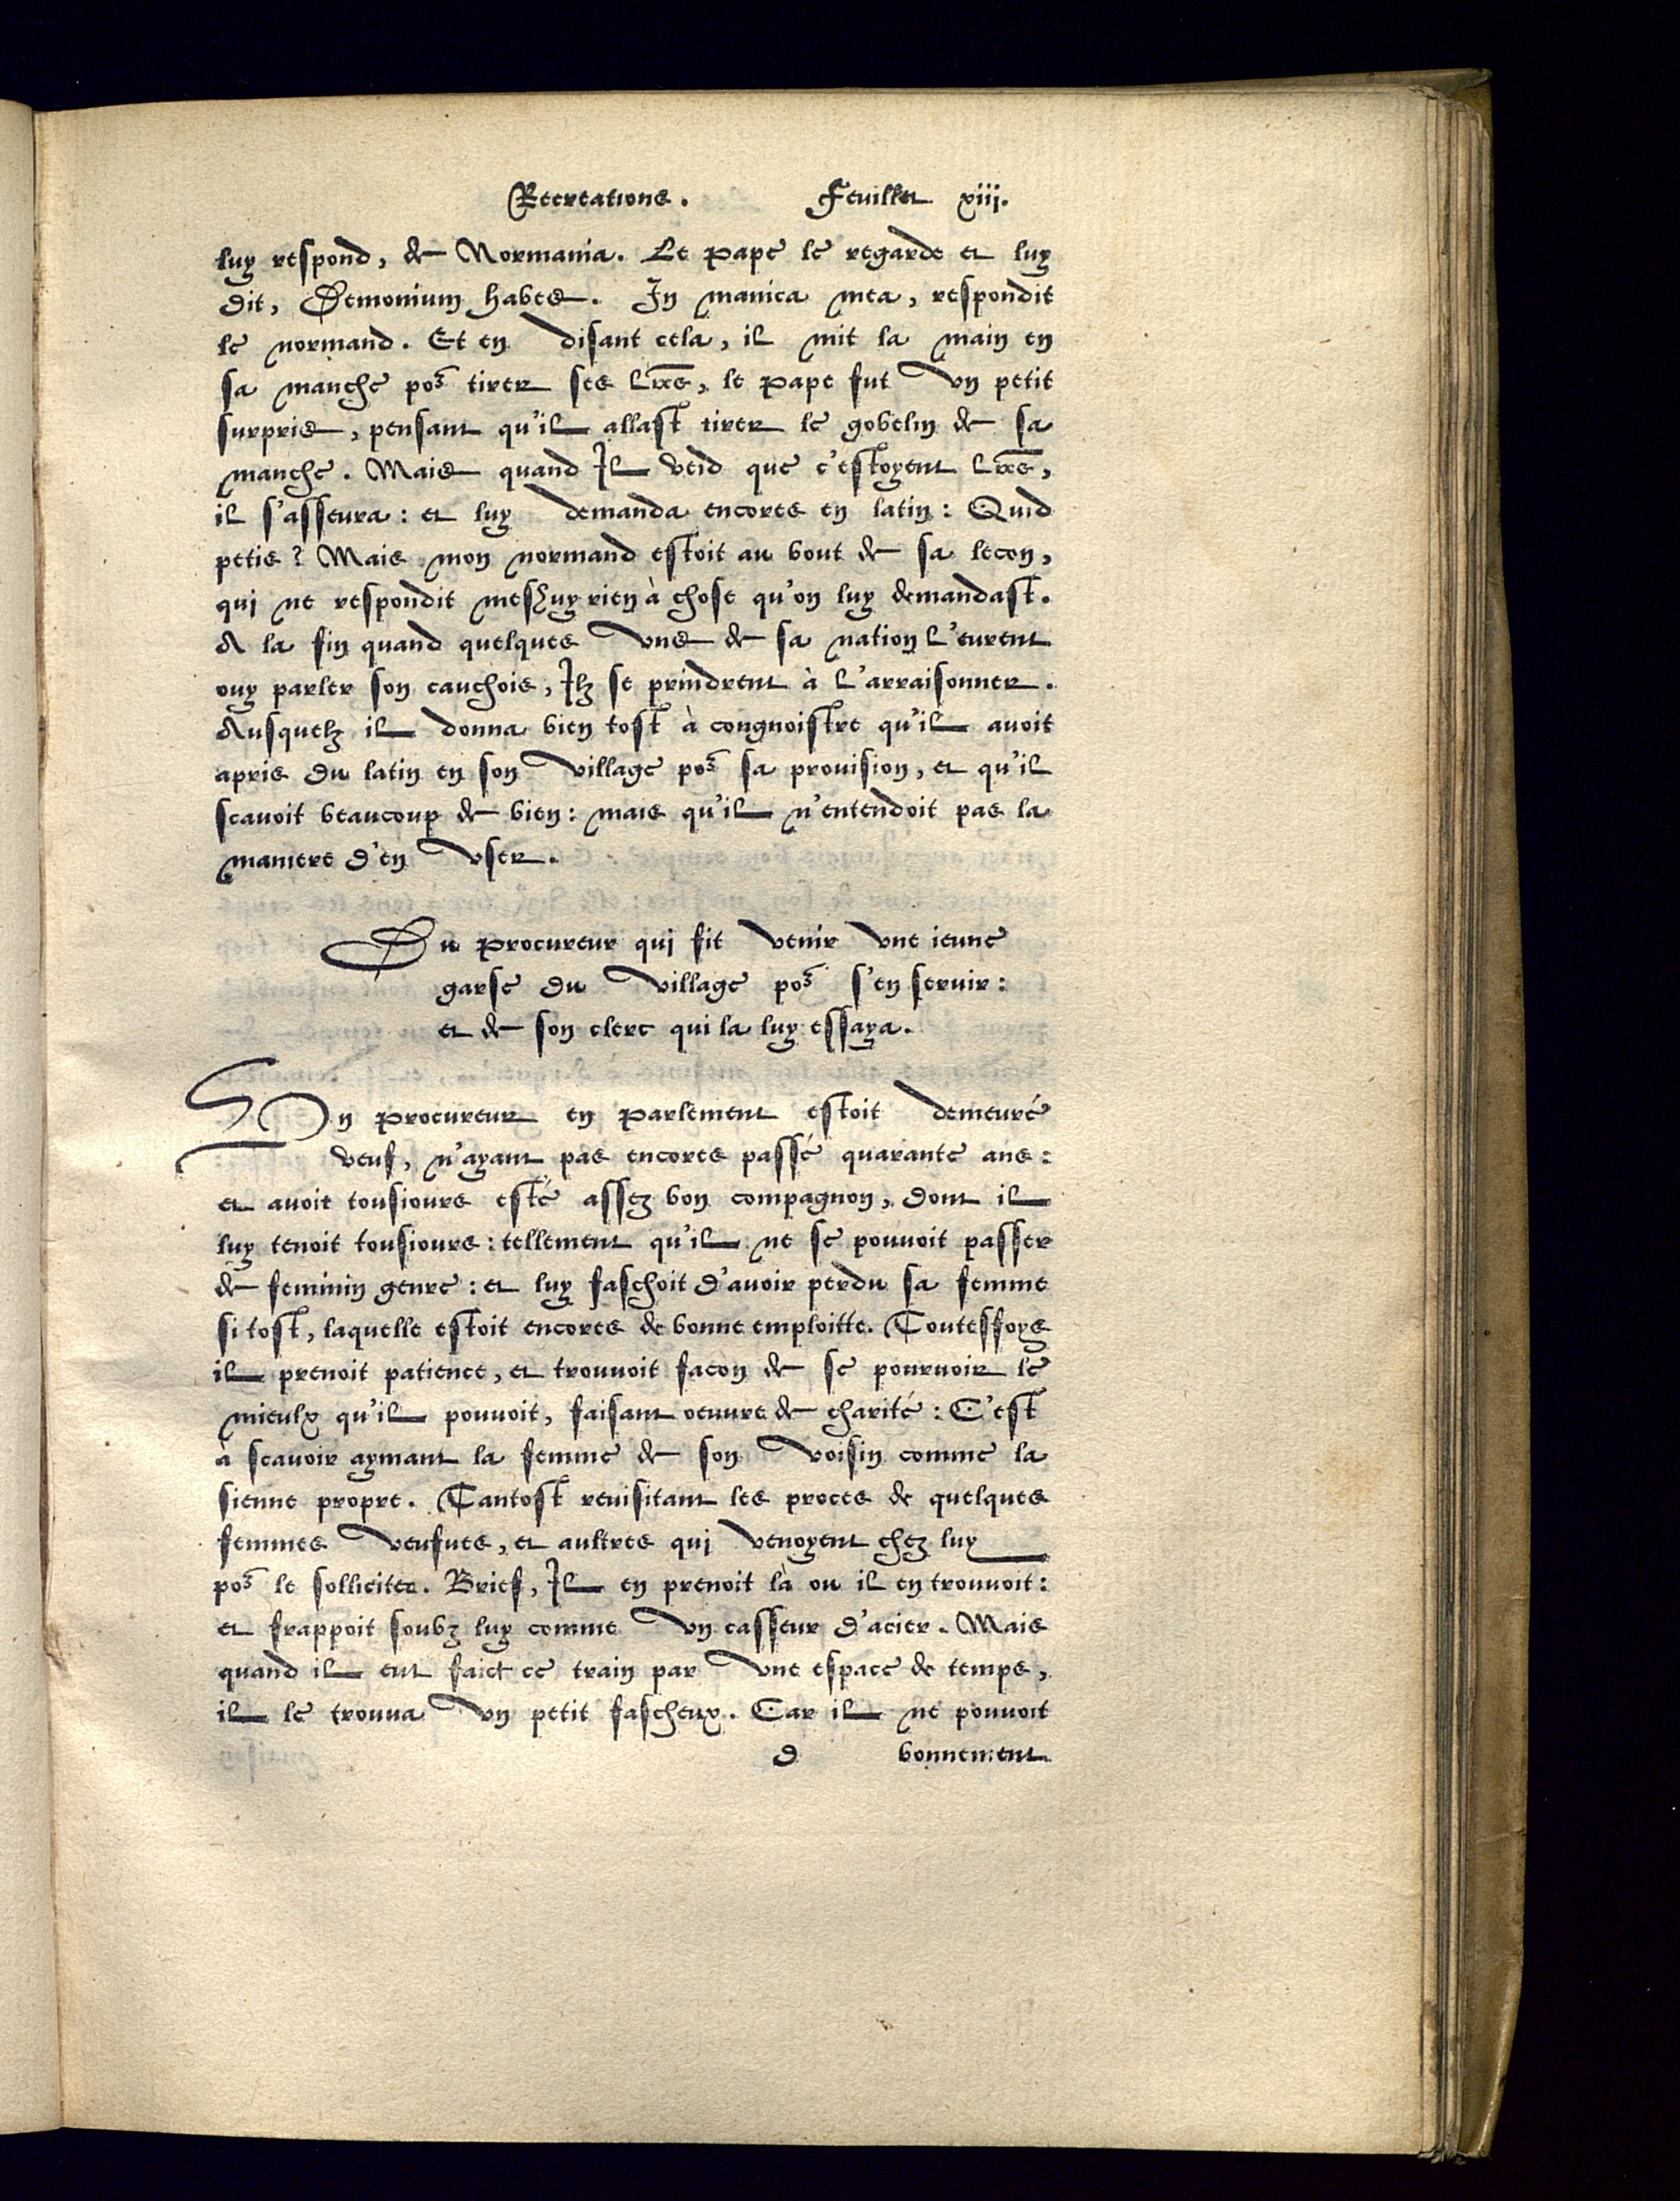 Recreations. Feuillet xiij.
luy respond, de Normania. Le pape le regarde et luy
dit, Demonium habes. In manica mea, respondit
le normand. Et en disant cela, il mit la main en
sa manche po᷑ tirer ses lr̅es, le pape fut vn petit
surpris, pensant qu'il allast tirer le gobelin de sa
manche. Mais quand Il veid que c'estoyent lr̅es,
il s'asseura: et luy demanda encores en latin: Quid
petis? Mais mon normand estoit au bout de sa lecon,
qui ne respondit meshuy rien à chose qu'on luy demandast.
A la fin quand quelques vns de sa nation l'eurent
ouy parler son cauchois, Ilz se prindrent à l'arraisonner.
Ausquelz il donna bien tost à congnoistre qu'il auoit
apris du latin en son village po᷑ sa prouision, et qu'il
scauoit beaucoup de bien: mais qu'il n'entendoit pas la
maniere d'en vser.
Du procureur qui fit venir vne ieune
garse du village po᷑ s'en seruir:
et de son clerc qui la luy essaya.
Vn procureur en parlement estoit demeuré
veuf, n'ayant pas encores passé quarante ans:
et auoit tousiours esté assez bon compagnon, dont il
luy tenoit tousiours: tellement qu'il ne se pouuoit passer
de feminin genre: et luy faschoit d'auoir perdu sa femme
si tost, laquelle estoit encores de bonne emploitte. Toutesfoys
il prenoit patience, et trouuoit facon de se pouruoir le
mieulx qu'il pouuoit, faisant oeuure de charité: C'est
à scauoir aymant la femme de son voisin comme la
sienne propre. Tantost reuisitant les proces de quelques
femmes veufues, et aultres qui venoyent chez luy
po᷑ le solliciter. Brief, Il en prenoit là ou il en trouuoit:
et frappoit soubz luy comme vn casseur d'acier. Mais
quand il eut faict ce train par vne espace de temps,
il le trouua vn petit fascheux. Car il ne pouuoit
d bonnement